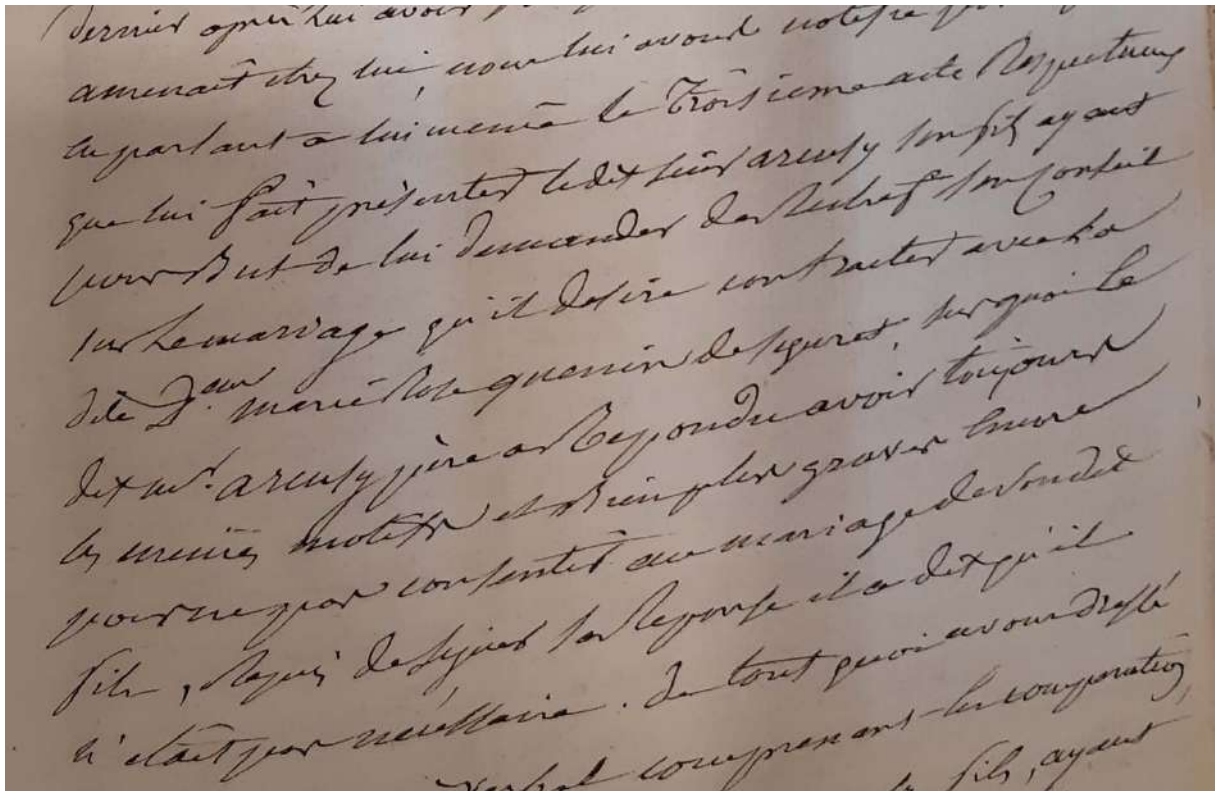 dernier après lui avoir
amenait chez lui, nous lui avons notifié
en parlant a lui même le Troisieme acte Respectueux
que lui fait présenter ledit sieur areusy son fils ayant
pour But de lui demander de Rechef son Conseil
sur Le mariage qu'il desire contracter avec La
dite D.elle marie Rose guerin de seguret, sur quoi le
dit mr. areusy père a Repondu avoir toujours
les mêmes motifs et Bien plus graves encore
pour ne pas consentir au mariage de son dit
fils, Requis de signer sa Reponse il a dit qu'il
n'etait pas nécessaire. de tout quoi avons dressé
verbal comprenant les comparutions,
fils, ayant